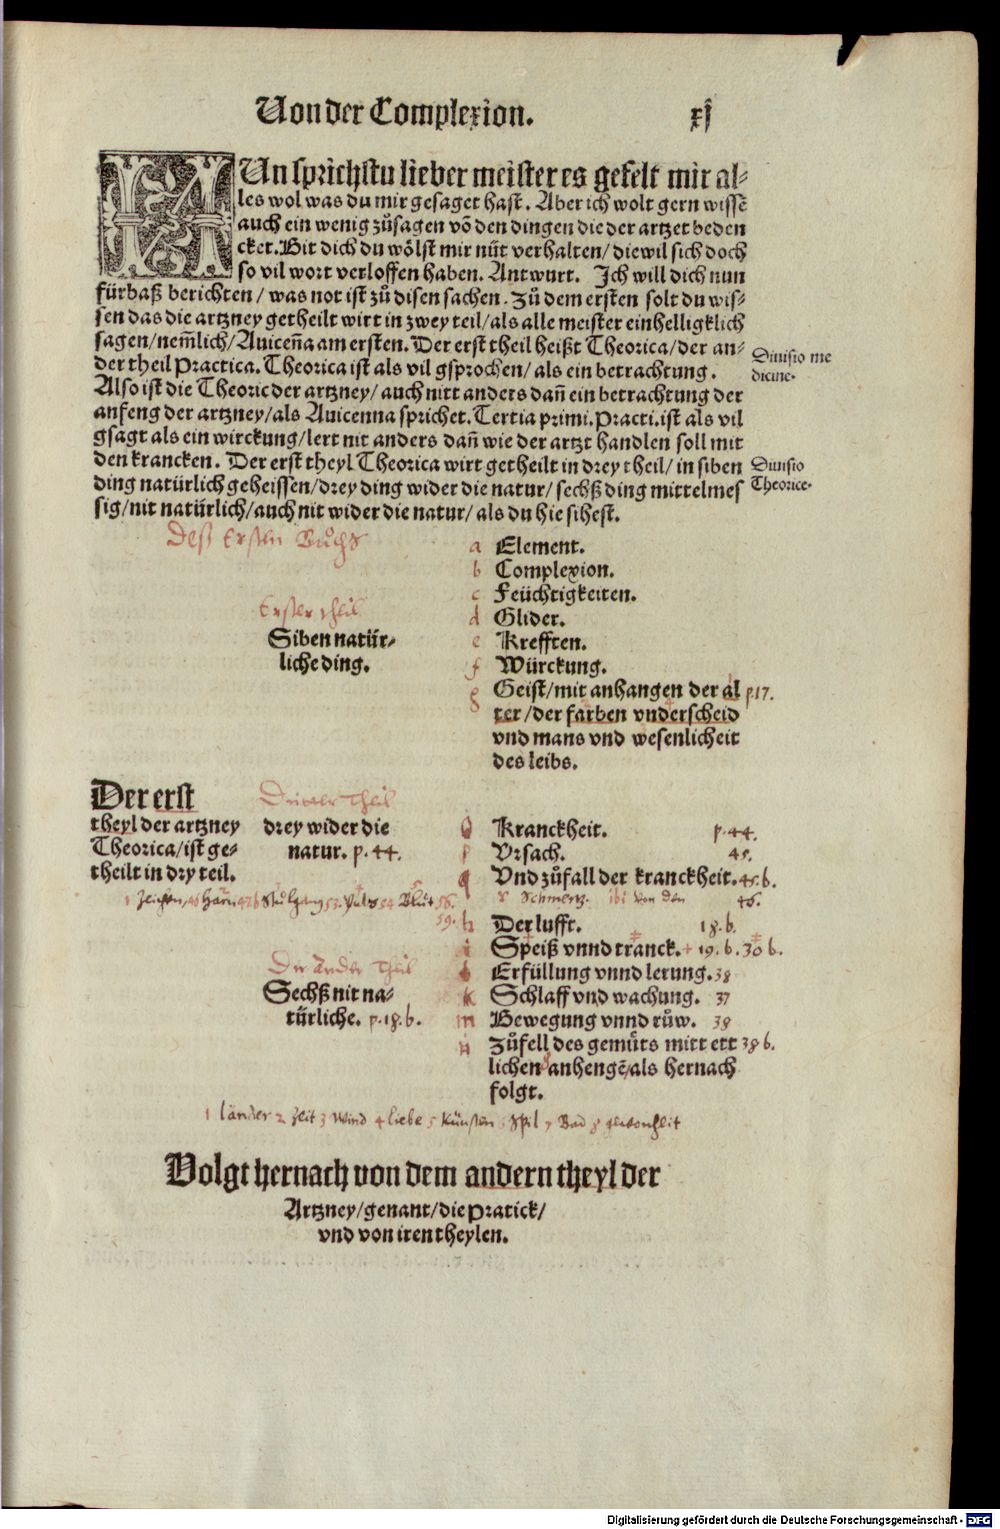 Von der Complexion. xj
NUn sprichstu lieber meister es gefelt mir al-
les wol was du mir gesaget hast. Aber ich wolt gern wissē
auch ein wenig zůsagen vō den dingen die der artzet beden
cket. Bit dich du wölst mir nüt verhalten/ diewil sich doch
so vil wort verloffen haben. Antwurt. Ich will dich nun
fürbaß berichten/ was not ist zů disen sachen. Zů dem ersten solt du wis-
sen das die artzney getheilt wirt in zwey teil/ als alle meister einhelligklich
sagen/ nem̄lich/ Auiceñа am ersten. Der erst theil heißt Theorica/ der an-
der theil Practica. Theorica ist als vil gsprochen/ als ein betrachtung.
Diuisio me
dicine.
Also ist die Theoric der artzney/ auch nitt anders dañ ein betrachtung der
anfeng der artzney/ als Auicenna sprichet. Tertia primi. Practi. ist als vil
gsagt als ein wirckung/ lert nit anders dañ wie der artzt handlen soll mit
den krancken. Der erst theyl Theorica wirt getheilt in drey theil/ in siben
ding natürlich geheissen/ drey ding wider die natur/ sechß ding mittelmes
sig/ nit natürlich/ auch nit wider die natur/ als du hie sihest.
Diuisio
Theorice.
Deß Ersten Buchs
Erster theil
Siben natür-
liche ding.
a Element.
b Complexion.
c Feüchtigkeiten.
d Glider.
e Krefften.
f Würckung.
g Geist/ mit anhangen der al p. 17.
ter/ der farben vnderscheid
vnd mans vnd wesenlicheit
des leibs.
Der erst
theyl der artzney
Theorica/ ist ge-
theilt in dry teil.
Theil
drey wider die
natur. p. 44.
Kranckheit. p. 44.
Vrsach. 45.
q Vnd zůfall der kranckheit. 45. b.
1 Zeichen, Harn Stulgang Puls Blut
Schmertz. 46.
Der ander Theil
Sechß nit na-
türliche. p. 18. b.
h Der lufft. 18. b.
i Speiß vnnd tranck. + 19. b. 30 b.
Erfüllung vnnd lerung. 38
k Schlaff vnd wachung. 37
m Bewegung vnnd růw. 38
n Zůfell des gemüts mitt ett 38 b.
lichen anhengē/ als hernach
folgt.
1 länder 2 Zeit 3 Wind 4 liebe 5 Künsten 6 Spil 7 Bad 8 gewonheit
Volgt hernach von dem andern theyl der
Artzney/ genant/ die Pratick/
vnd von iren theylen.
Digitalisierung gefördert durch die Deutsche Forschungsgemeinschaft - DFG